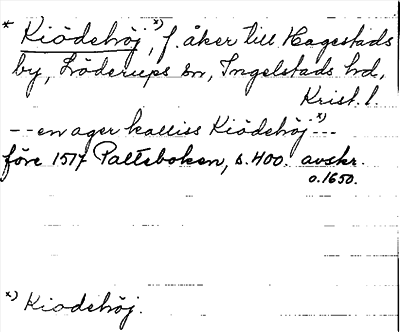 * Kiödehöj x), f. åker till Hagestads
by, Löderups sn, Ingelstads hd,
Krist. l.
-- en ager kalliss Kiödehöj x)--
före 1517 Palteboken, s. 400. avskr.
o. 1650.
x) Kiodehöj.